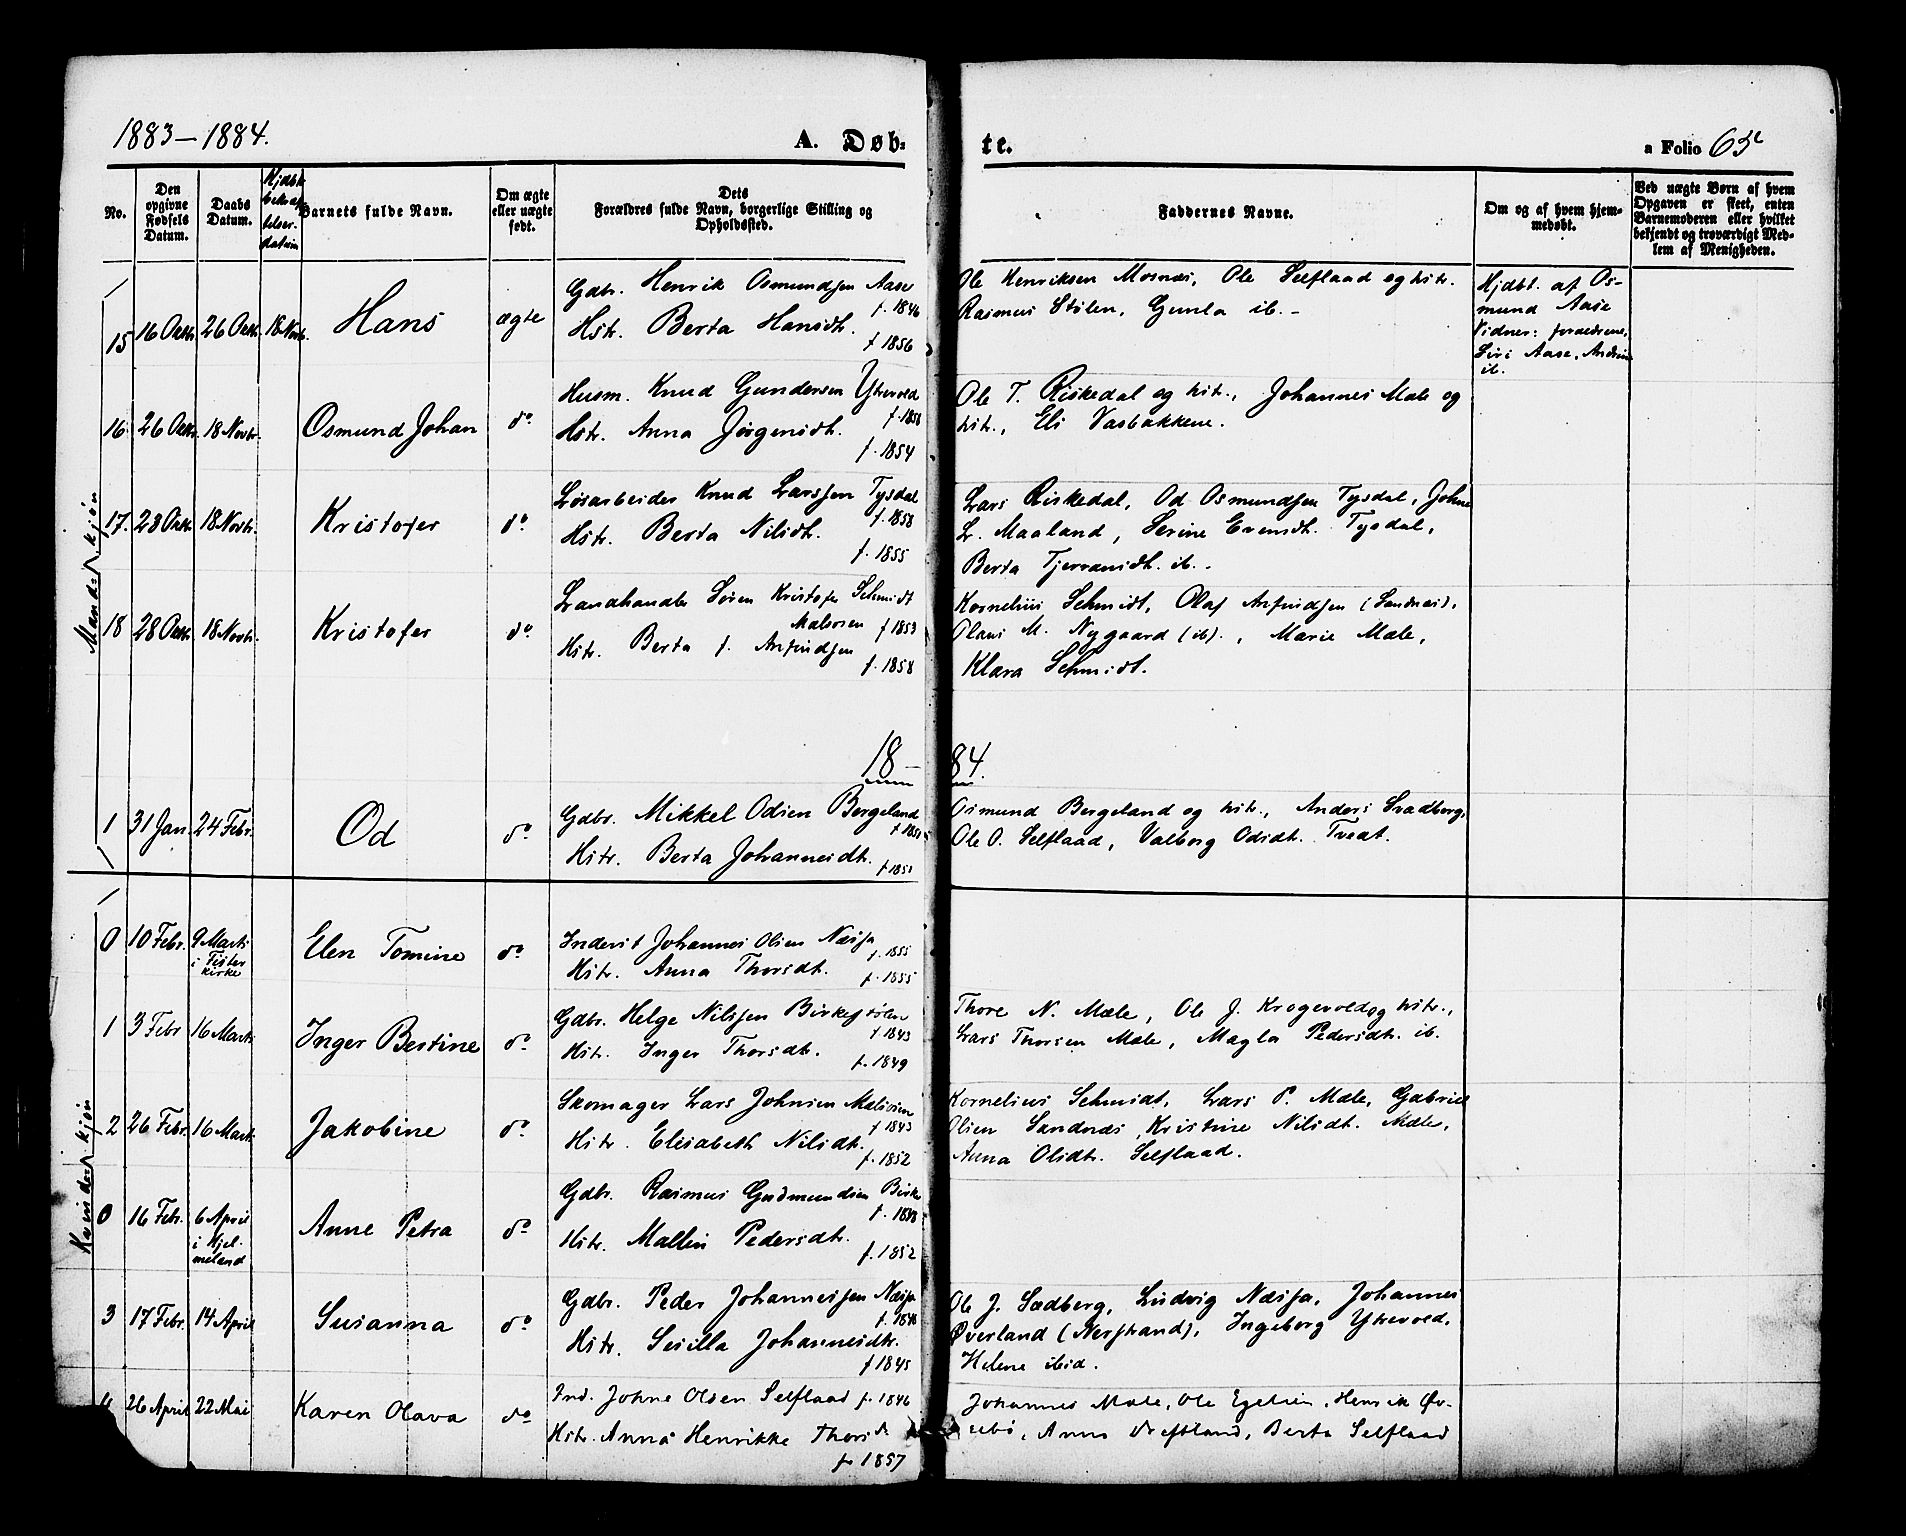 1883–1884.
A. Døb-
te.
a Folio 65
No.
Den opgivne Fødsels Datum.
Daabs Datum.
Hjdbs bekræftelses- datum
Barnets fulde Navn.
Om ægte eller uægte født.
Dets Forældres fulde Navn, borgerlige Stilling og Opholdssted.
Faddernes Navne.
Om og af hvem hjem- medøbt.
Ved uægte Børn af hvem Opgaven er skeet, enten Barnemoderen eller hvilket bekjendt og troværdigt Med- lem af Menigheden.
Mandkjøn
15 16 Octbr. 26 Octbr. 18 Novbr. Hans ægte
Gdbr. Henrik Osmundsen Aase f. 1846
Hstr. Berta Hansdt. f 1856
Ole Henriksen Mosnæs, Ole Selflaad og hstr.
Rasmus Stølen, Gunla ib. -
Hjdbt. af Os-
mund Aase
Vidner: forældrene,
Siri Aase,
ib.
16 26 Octbr. 18 Novbr. Osmund Johan do
Husm. Knud Gundersen Ytrevold f. 1858
Hstr. Anna Jørgensdt. f. 1854
Ole T. Riskedal og hstr., Johannes Mæle og
hstr., Eli Vasbakkene.
17. 28 Octbr. 18 Novbr. Kristofer do
Løsarbeider Knud Larssen Tysdal f. 1858
Hstr. Berta Nilsdt. f. 1855
Lars Riskedal, Od Osmundsen Tysdal, Johne
L. Maaland, Serine Evensdt. Tysdal,
Berta Tjerransdt. ib. -
18 28 Octbr. 18 Novbr. Kristofer do
Landhandler Søren Kristofer Schmidt
Mælsosen f 1853
Hstr. Berta f. Arfindsen f. 1858
Kornelius Schmidt, Olaf Arfindsen (Sandnæs),
Olaus M. Nygaard (ib)., Marie Mæle,
Klara Schmidt.
18–84.
1 31 Jan. 24 Febr. Od do
Gdbr. Mikkel Odsen Bergeland
Hstr. Berta Johannesdt.
Osmund Bergeland og hstr., Anders Svadberg,
Ole O. Selflaad, Valborg Odsdt. Tveat.
Kvindekjøn
0 10 Febr. 9 Marts Elen Tomine do
i Fister
kirke
Inderst Johannes Olsen Næsja f. 1855
Hstr. Anna Thorsdt. f. 1855
1 3 Febr 16 Marts Inger Bertine do
Gdbr. Helge Nilssen Birkestølen f 1843
Hstr. Inger Thorsdtr. f. 1849
Thore N. Mæle, Ole J. Krogevold og hstr.,
Lars Thorsen Mæle, Magla Pedersdt. ib.
2 26 Febr. 16 Marts Jakobine do
Skomager Lars Johnsen Mælsosen f 1843
Hstr. Elisabeth Nilsdt. f. 1852
Kornelius Schmidt, Lars P. Mæle, Gabriel
Olsen Sandnæs, Kristine Nilsdt. Mæle,
Anna Olsdtr. Selflaad.
0 16 Febr. 6 April Anne Petra do
i Hjel-
meland
Gdbr. Rasmus Gudmundsen Birke
Hstr. Mallin Pedersdtr. f. 1852
3 17 Febr. 14 April Susanna do
Gdbr. Peder Johannessen Næsja
Hstr. Sesilla Johannesdtr. f 1845
Ole J. Sædberg, Ludvig Næsja, Johannes
Øverland (Nerstrand), Ingeborg Ytrevold,
Helene ibid.
4 26 April 22 Mai Karen Olava do
Ind. Johne Olsen Selflaad f. 1846
Hstr. Anna Henrikke Thorsd
f. 1857
Johannes Mæle, Ole Egeland, Henrik Øv-
rebø, Anna Vestland, Berta Selflaad